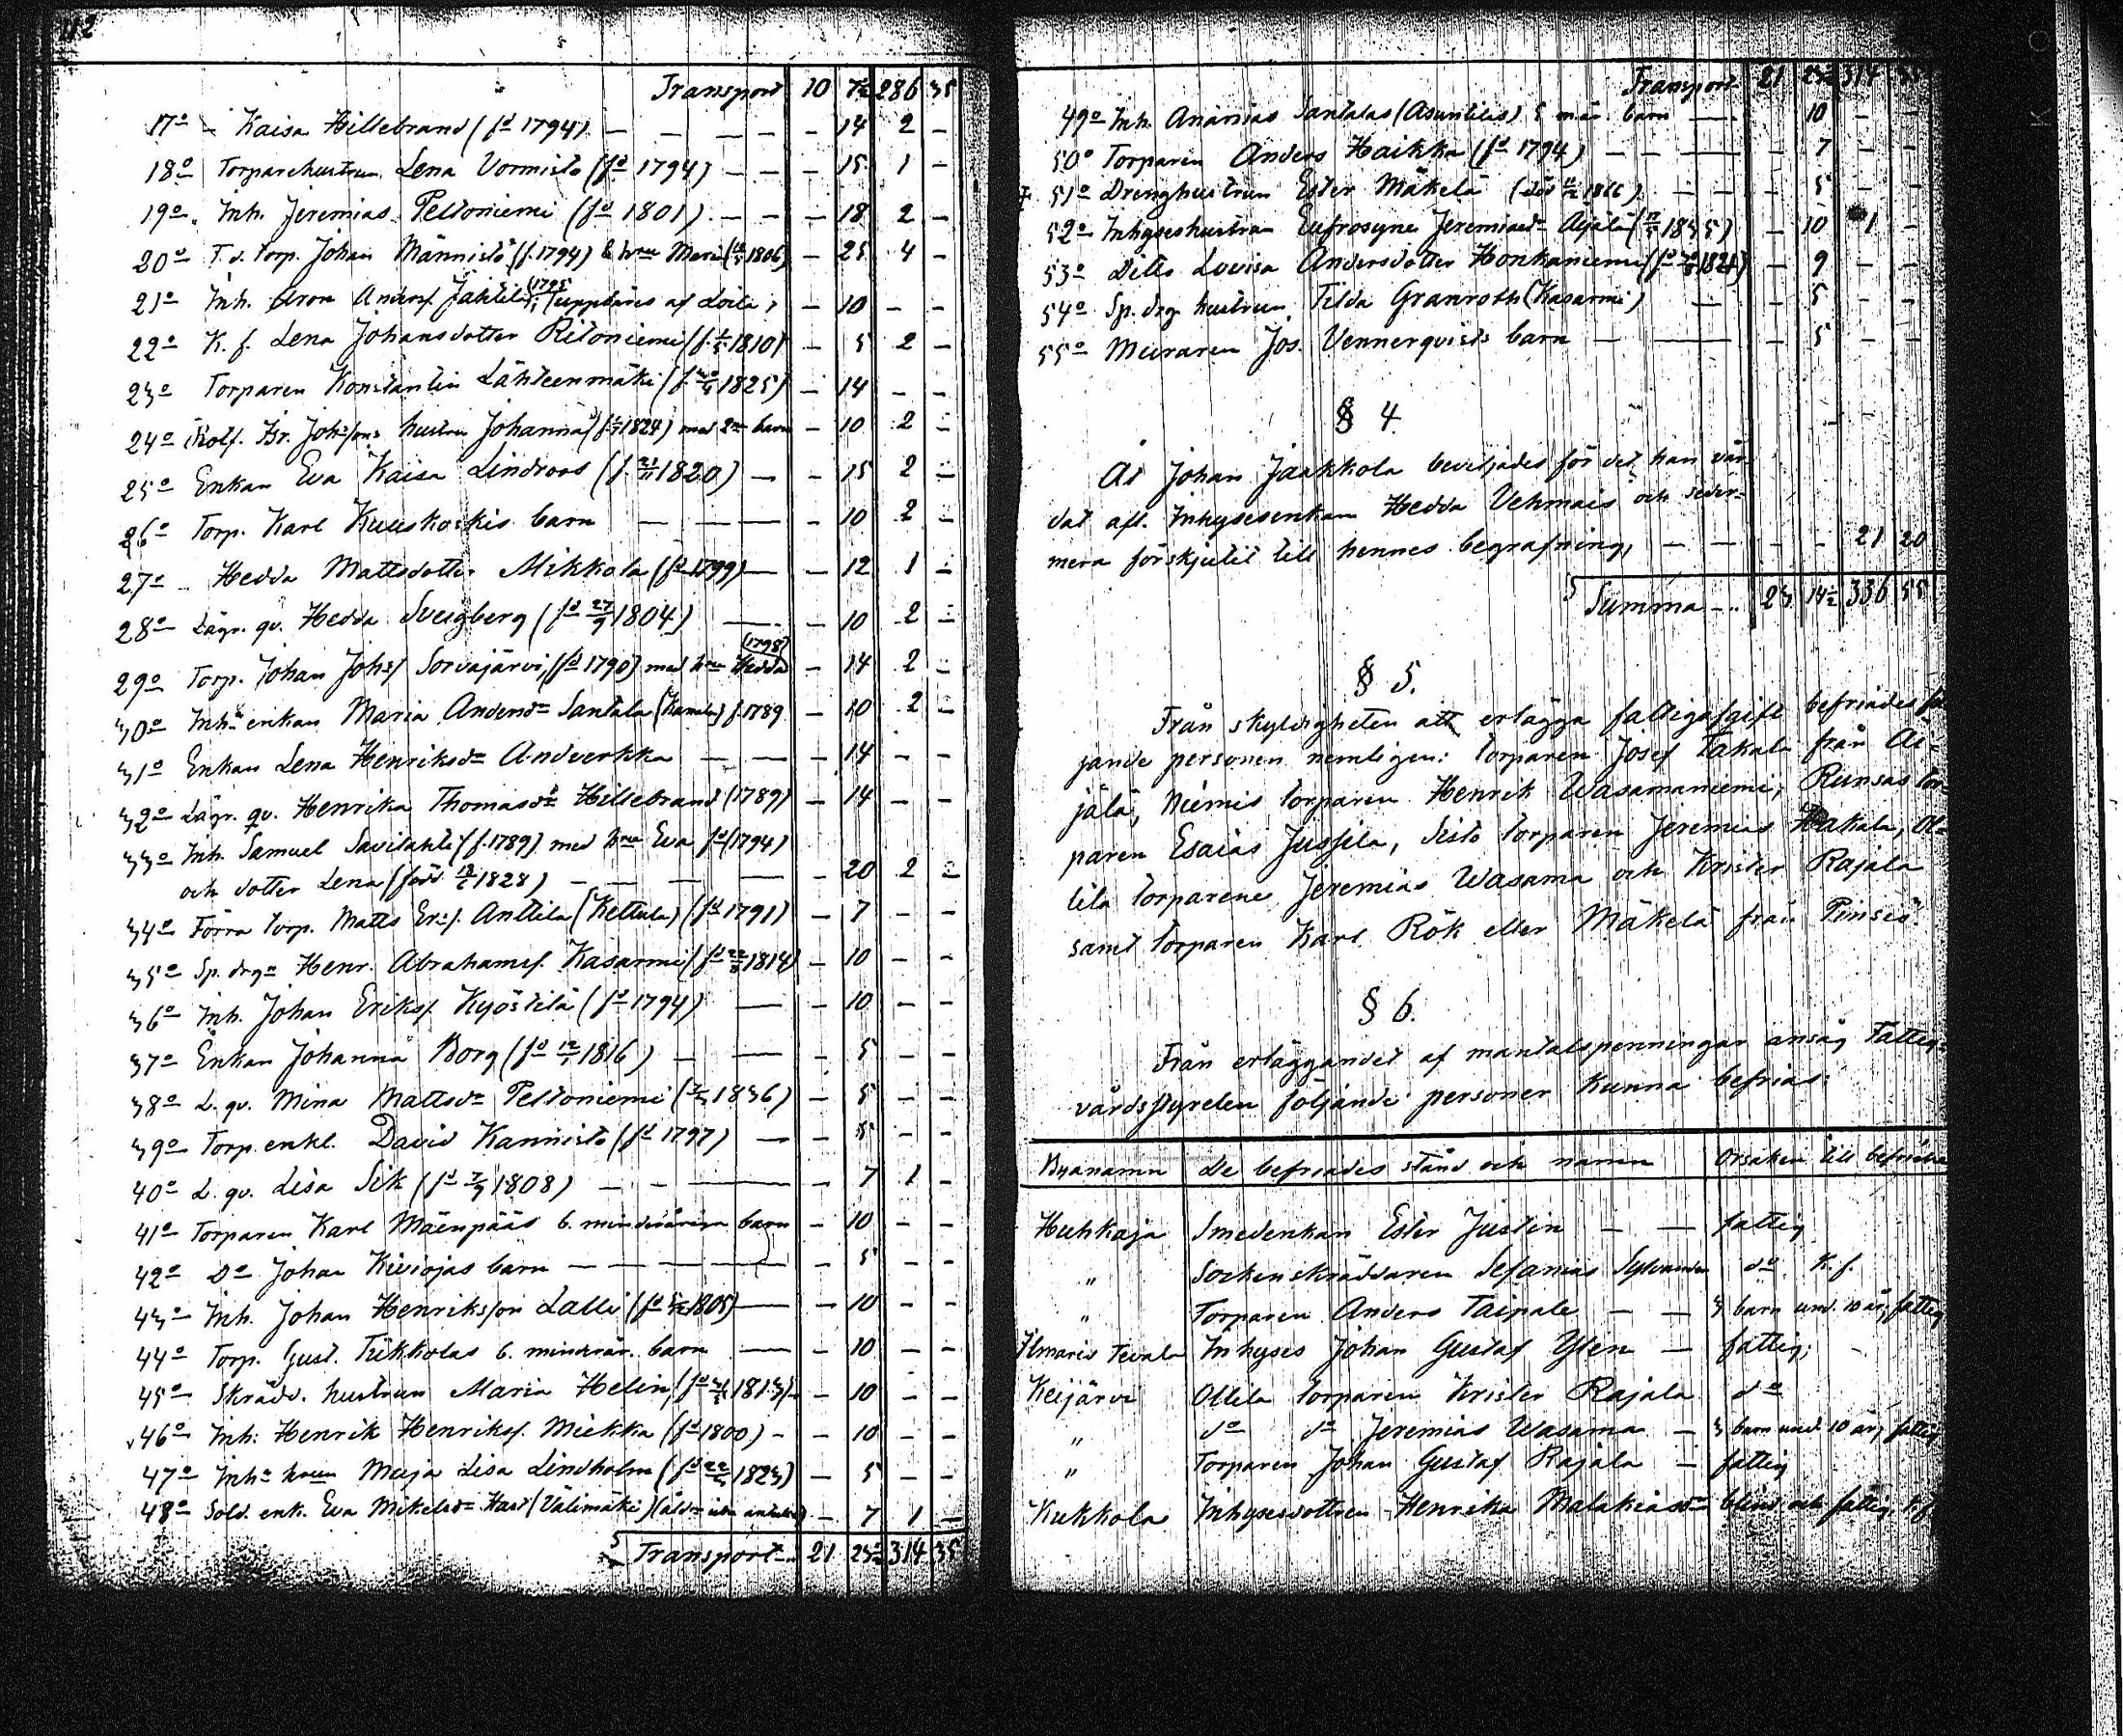 112
Transport 10 7½ 286 35
17o – Kaisa Hillebrand (fd 1794) – – – – – – 14 2 –
18o Torparehustrun Lena Vormisto (fd 1794) – – – 15 1 –
19o Inh. Jeremias Peltoniemi (fd 1801) – – – 18 2 –
20o F. d. torp. Johan Männistö (f. 1794) & hru Maria 1806) – 25 4 –
21o Inh. Aron Andersf. (1795) af – 10 – –
22o K. f. Lena Johansdotter Ritoniemi (f. 1810) – 5 2 –
23o Torparen Konstantin Lähteenmäki (f. 1825) – 14 – –
24o hustru Johanna 1824) med 2ne barn – 10 2 –
25o Enkan Eva Kaisa Lindroos (f. 21/11 1820) – – 15 2 –
26o Torp. Karl Kuuskoskis barn – – – – 10 2 –
27o Hedda Mattsdotter Mikkola (fd 1799) – – 12 1 –
28o Lägr. qv. Hedda (fd 27/9 1804) – – 10 2 –
29o Torp. Johan Johsf Sorvajärvi, (fd 1790) med hru Hedda (1798) – 14 2 –
30o Inhs enkan Maria Andersdr Santala f. 1789 – 10 2 –
31o Enkan Lena Henriksdr – – – 14 – –
32o Lägr. qv. Henrika Thomasdr Hillebrand (1789) – 14 – –
33o Inh. Samuel Savilahti (f. 1789) med hru Eva fd (1794)
och dotter Lena (född 1828) – – – – – 20 2 –
34o Förra torp. Matts Ersf. Anttila (Kettula) (fd 1791) – 7 – –
35o Sp. drgn Henr. Abrahamsf. Kasarmi (fd 1814) – 10 – –
36o Inh. Johan Eriksf. Kyöstilä (fd 1794) – – 10 – –
37o Enkan Johanna Borg (fd 1816) – – – 5 – –
38o L. qv. Mina Mattsdr Peltoniemi 1836) – 5 – –
39o Torp. enkl. David Kannisto (fd 1797) – – 5 – –
40o L. qv. Lisa Sik (fd 1808) – – – 7 1 –
41o Torparen Karl Mäenpääs 6. minderåriga barn – 10 – –
42o Do Johan Kiviojas barn – – – – – 5 – –
43o Inh. Johan Henriksson Lalli (fd 1805) – – 10 – –
44o Torp. Gust. Tikkolas 6. minderår. barn – – 10 – –
45o Skrädd. hustrun Maria Helin (fd 1813) – – 10 – –
46o Inh. Henrik Henriksf. Miekka (fd 1800) – – 10 – –
47o Inhs hrun Maja Lisa Lindholm (fd 1823) – 5 – –
48o Sold. enk. Eva Mikelsdr (Välimäki) – 7 1 –
Transport 21 23½ 314 35
Transport 21 23½ 314 35
49o Inh. Ananias Santalas 5 mår. barn – – 10 – –
50o Torparen Anders Haikka (fd 1794) – – – – 7 – –
51o Drenghustrun Ester Mäkelä (död 1866) – – – 5 – –
52o Inhyseshustrun Eufrosyne Jeremiaedr 1835) – 10 1 –
53o Ditto Lovisa Andersdotter Honkaniemi (fd – 9 – –
54o Sp. drg hustrun Tilda Granroth (Kasarmi) – – 5 – –
55o Muraren Jos. Vennerqvists barn – – – 5 – –
§ 4.
Åt Johan Jaakkola beviljades för det han vår-
dat afl. Inhysesenkan Hedda Vehmais och seder-
mera förskjutit till hennes begrafning, – – – – 21 20
Summa – 23 14½ 336 55
§ 5.
Från skyldigheten att erlägga fattigafgift befriades föl
jande personer nemligen: torparen Josef Takala från Ai-
jälä, Niemis torparen Henrik Wasamaniemi, Runsas tor-
paren Esaias Jussila, Sisto torparen Jeremias Hakala, Ol-
lila torparene Jeremias Wasama och Krister Rajala
samt torparen Karl Rök eller Mäkelä från Pinsiö.
§ 6.
Från erläggandet af mantalspenningar ansåg Fattig-
vårdsstyrelsen följande personer kunna befrias:
Byanamn De befriades stånd och namn Orsaken till befrielse
Huhkaja Smedenkan Ester Justin – – fattig
„ Sockenskräddaren Sefanias Sylvander do K. f.
„ Torparen Anders Taipale – – 3 barn und. 10 år, fattig
Ilmaris Tevala Inhyses Johan Gustaf Ylen – fattig;
Keijärvi Ollila torparen Krister Rajala do
„ do do Jeremias Wasama – 3 barn und. 10 år, fattig
„ Torparen Johan Gustaf Rajala – fattig
Kukkola Inhysesdottren Henrika Malakiasdr blind och fattig, k. f.